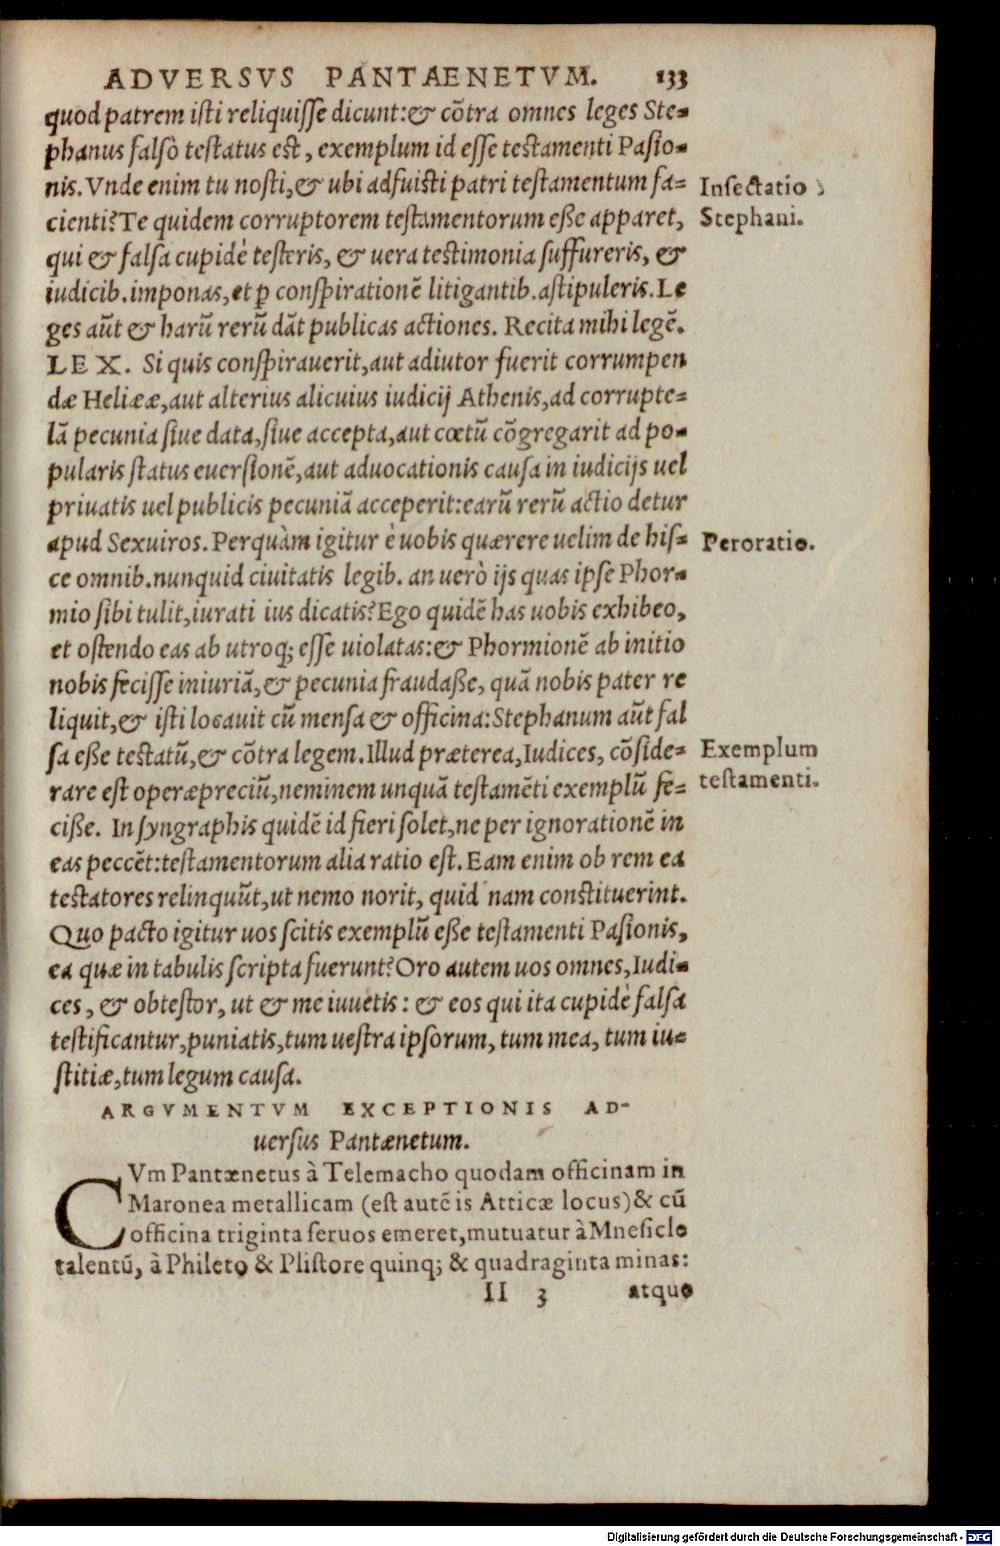 ADVERSVS PANTAENETVM. 133
quod patrem isti reliquisse dicunt:& cõtra omnes leges Ste-
phanus falsò testatus est, exemplum id esse testamenti Pasio-
nis. Vnde enim tu nosti, & ubi adfuisti patri testamentum fa-
cienti? Te quidem corruptorem testamentorum eße apparet,
qui & falsa cupidè testeris, & uera testimonia suffureris, &
iudicib. imponas, et ꝑ conspirationẽ litigantib. astipuleris. Le
ges aũt & harũ rerũ dãt publicas actiones. Recita mihi legẽ.
LEX. Si quis conspirauerit, aut adiutor fuerit corrumpen
dæ Heliææ, aut alterius alicuius iudicij Athenis, ad corrupte-
lã pecunia siue data, siue accepta, aut cœtũ cõgregarit ad po-
pularis status euersionẽ, aut aduocationis causa in iudicijs uel
priuatis uel publicis pecuniã acceperit: earũ rerũ actio detur
apud Sexuiros. Perquàm igitur è uobis quærere uelim de his-
ce omnib. nunquid ciuitatis legib. an uerò ijs quas ipse Phor-
mio sibi tulit, iurati ius dicatis? Ego quidẽ has uobis exhibeo,
et ostendo eas ab utroq; esse uiolatas: & Phormionẽ ab initio
nobis fecisse iniuriã, & pecunia fraudaße, quã nobis pater re
liquit, & isti locauit cũ mensa & officina: Stephanum aũt fal
sa eße testatũ, & cõtra legem. Illud præterea, Iudices, cõside-
rare est operæpreciũ, neminem unquã testamẽti exemplũ fe-
ciße. In syngraphis quidẽ id fieri solet, ne per ignorationẽ in
eas peccẽt: testamentorum alia ratio est. Eam enim ob rem ea
testatores relinquũt, ut nemo norit, quid nam constituerint.
Quo pacto igitur uos scitis exemplũ eße testamenti Pasionis,
ea quæ in tabulis scripta fuerunt? Oro autem uos omnes, Iudi-
ces, & obtestor, ut & me iuuetis: & eos qui ita cupidè falsa
testificantur, puniatis, tum uestra ipsorum, tum mea, tum iu-
stitiæ, tum legum causa.
Insectatio
Stephani.
Peroratio.
Exemplum
testamenti.
ARGVMENTVM EXCEPTIONIS AD-
uersus Pantænetum.
CVm Pantænetus à Telemacho quodam officinam in
Maronea metallicam (est autẽ is Atticæ locus) & cũ
officina triginta seruos emeret, mutuatur à Mnesicle
talentũ, à Phileto & Plistore quinq; & quadraginta minas:
II 3 atque
Digitalisierung gefördert durch die Deutsche Forschungsgemeinschaft - DFG